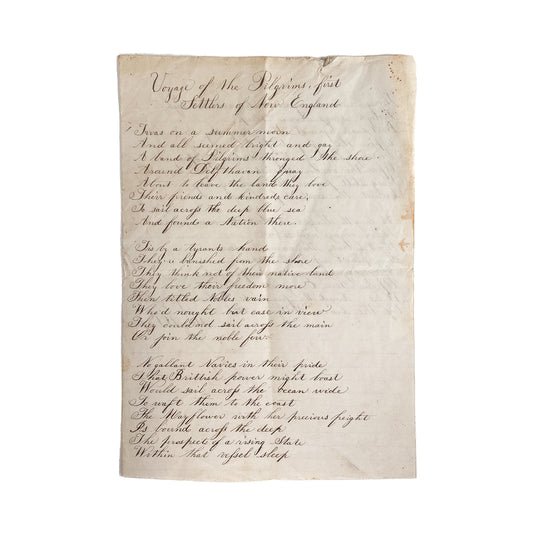 Voyage of the Pilgrims, first
Settlers of New England
Twas on a summer morn
And all seemed bright and gay
A band of Pilgrims thronged the shore
Around Delfthaven quay
About to leave the land they love
Their friends and kindreds care,
To sail across the deep blue sea
And found a Nation there.
Tis by a tyrants hand
They're banished from the shore
They think not of their native land
They love their freedom more
Then titled nobles vain
Who'd nought but ease in view
They could not sail across the main
Or join the noble few.
No gallant Navies in their pride
That Brittish power might boast
Would sail across the ocean wide
To waft them to the coast
The Mayflower with her precious freight
Is bound across the deep
The prospects of a rising State
Within that vessel sleep